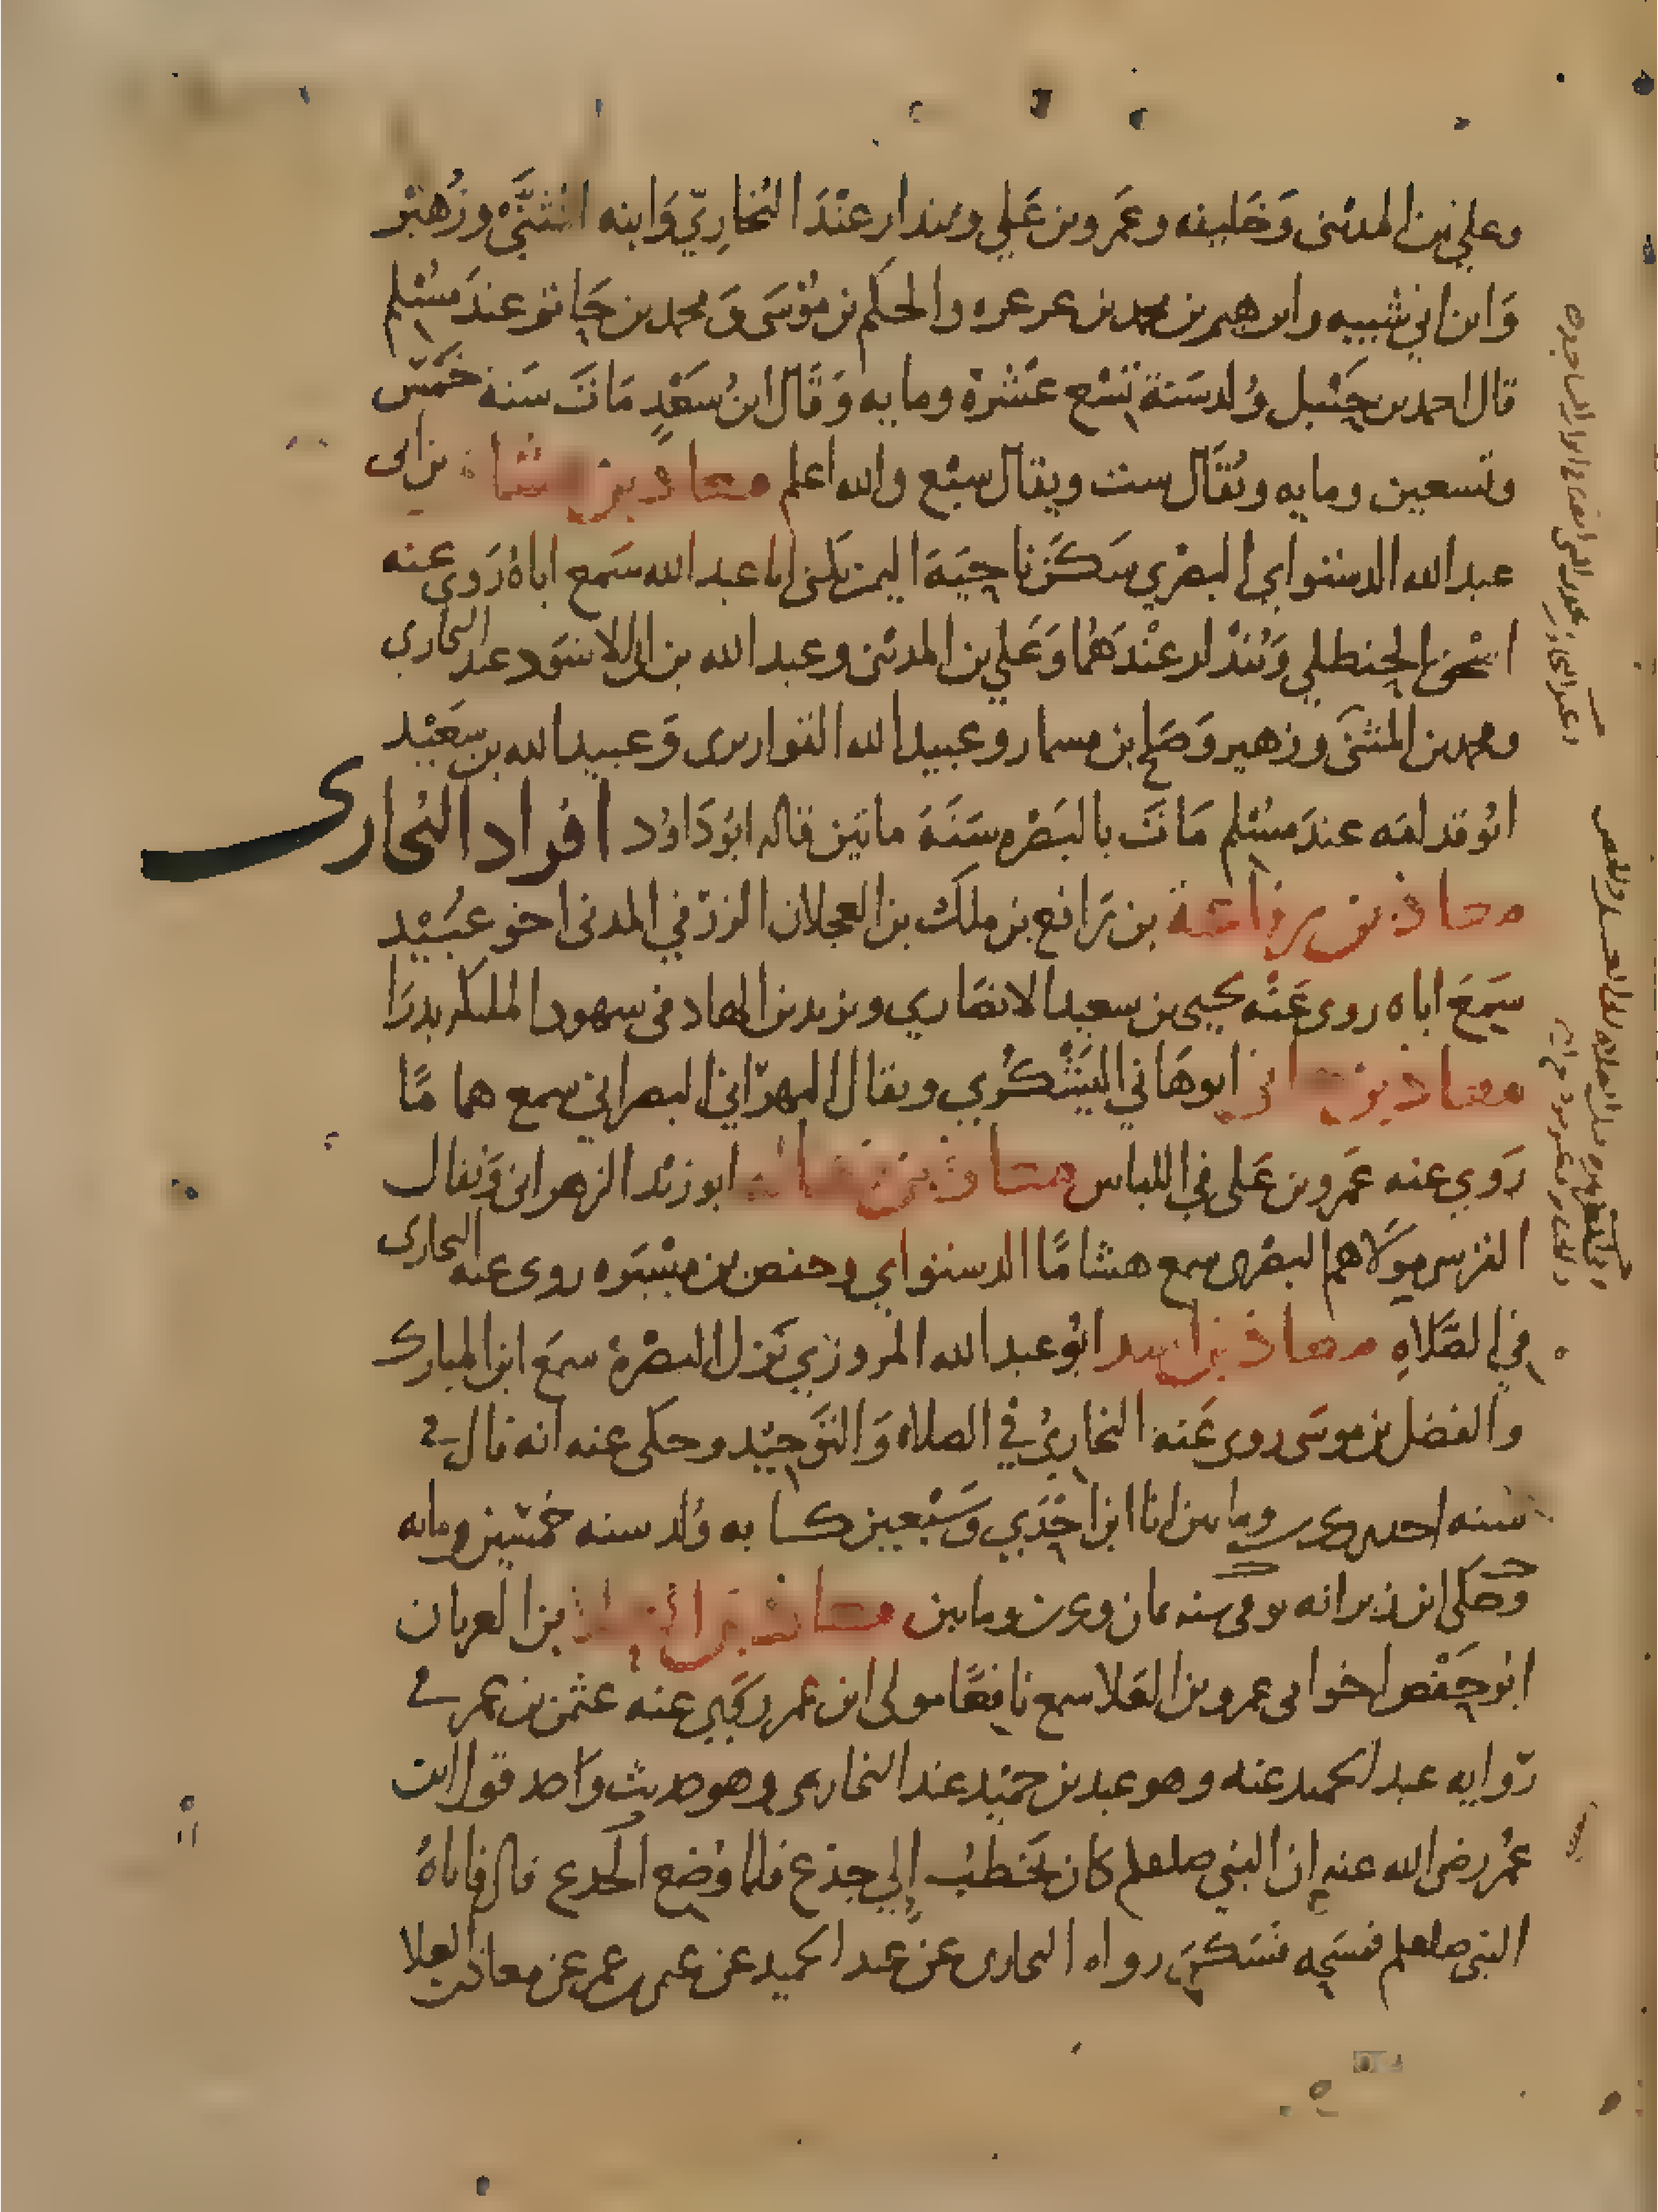 وعلي بن المديني وَخَليفه وعَمرو بن عَلي وبندار عنْدَ البُخارِيّ وَابنه المثنَّى وزُهيْر
وَابن ابي شيبه وابرهيم بن محمد بن عرعره والحكَم بن مُوسَى وَمحمد بن حَاتم عندَ مسْلم
قال احمد بن حَنْبل وُلد سَنة تسْع عَشْرة ومايه وَقَال ابنُ سعَدٍ مَاتَ سَنة خمَسْ
وتسعين ومايه ويُقَال ست ويقال سبْع والله اعلم معاذ بن هشام بن ابى
عبد الله الدستواي البصْري سَكَن نَاحِيَة اليمن يكنى ابا عبد الله سَمع اباهُ رَوي عنه
اسْحٰق الحنطلي وَبُنْدار عنْدَهُما وَعَلي بن المديْنى وعبد الله بن ابي الاسَود عند البخارى
ومحمد بن المثنَى وزهير وَصَالح بن مسمار وعبيد الله القواريرى وَعبيد الله بن سعَيْد
ابُو قدامَه عندَ مسْلم مَاتَ بالبَصْره سَنَة مايتين قاله ابوُ دَاوُد افراد البُخارى
معاذ بن رفاعة بن رَافع بن ملك بن العجلان الزرَقي المدنى اخو عبُيْد
سَمِعَ اباه روى عَنْه يحيى بن سعيد الانصَاري ويزيد بن الهاد فى شهود الملئكه بدرَا
معاذ بن هانئ ابو هَاني اليَشْكُري ويقال البهرَاني البصراني سمع همامًا
رَوي عنه عَمرو بن عَلى في اللباس معاذ بن فضالة ابو زيْد الزهرانى وَيُقال
القرشى مَولاهم البصْرى سمع هشامًا الدستواي وحفص بن ميْسَره روى عنه البخارى
في الصَّلاهِ معاذ بن اسد ابُو عبد الله المروزي نَزل البصْرهْ سمعَ ابن المبارك
والفضل بن موسَى روى عَنه البخاريُ في الصلاه وَالتوَحيْد وحكى عنه انه قال في
سنه احدى وعشرين ومايتين انا ابن احْدَي وَسَبْعين كانه وُلد سنه خمسْين ومايه
وحَكى ابن زبر انه توفى سنه ثمان وعشرين ومايتين معاذ بن العلاء بن العريان
ابو حَفْص اخو ابى عمرو بن العَلا سمع نافعًا مولى ابن عمر رَوَي عنه عثمن بن عمر في
رَوايه عبد الحميد عنه وهو عبد بن حمَيْد عند البخارى وهو حديث واحد قول ابن
عُمر رضى الله عنه إن النبي صلعلم كان يَخطبُ إلي جذع فلما وُضع المنبر قال فاتاهُ
النبى صلعلم فمسَحه فسَكَن رواه البخارى عَن عَبد الحميد عَن عثمن بن عمر عَن معاذ بن العلا